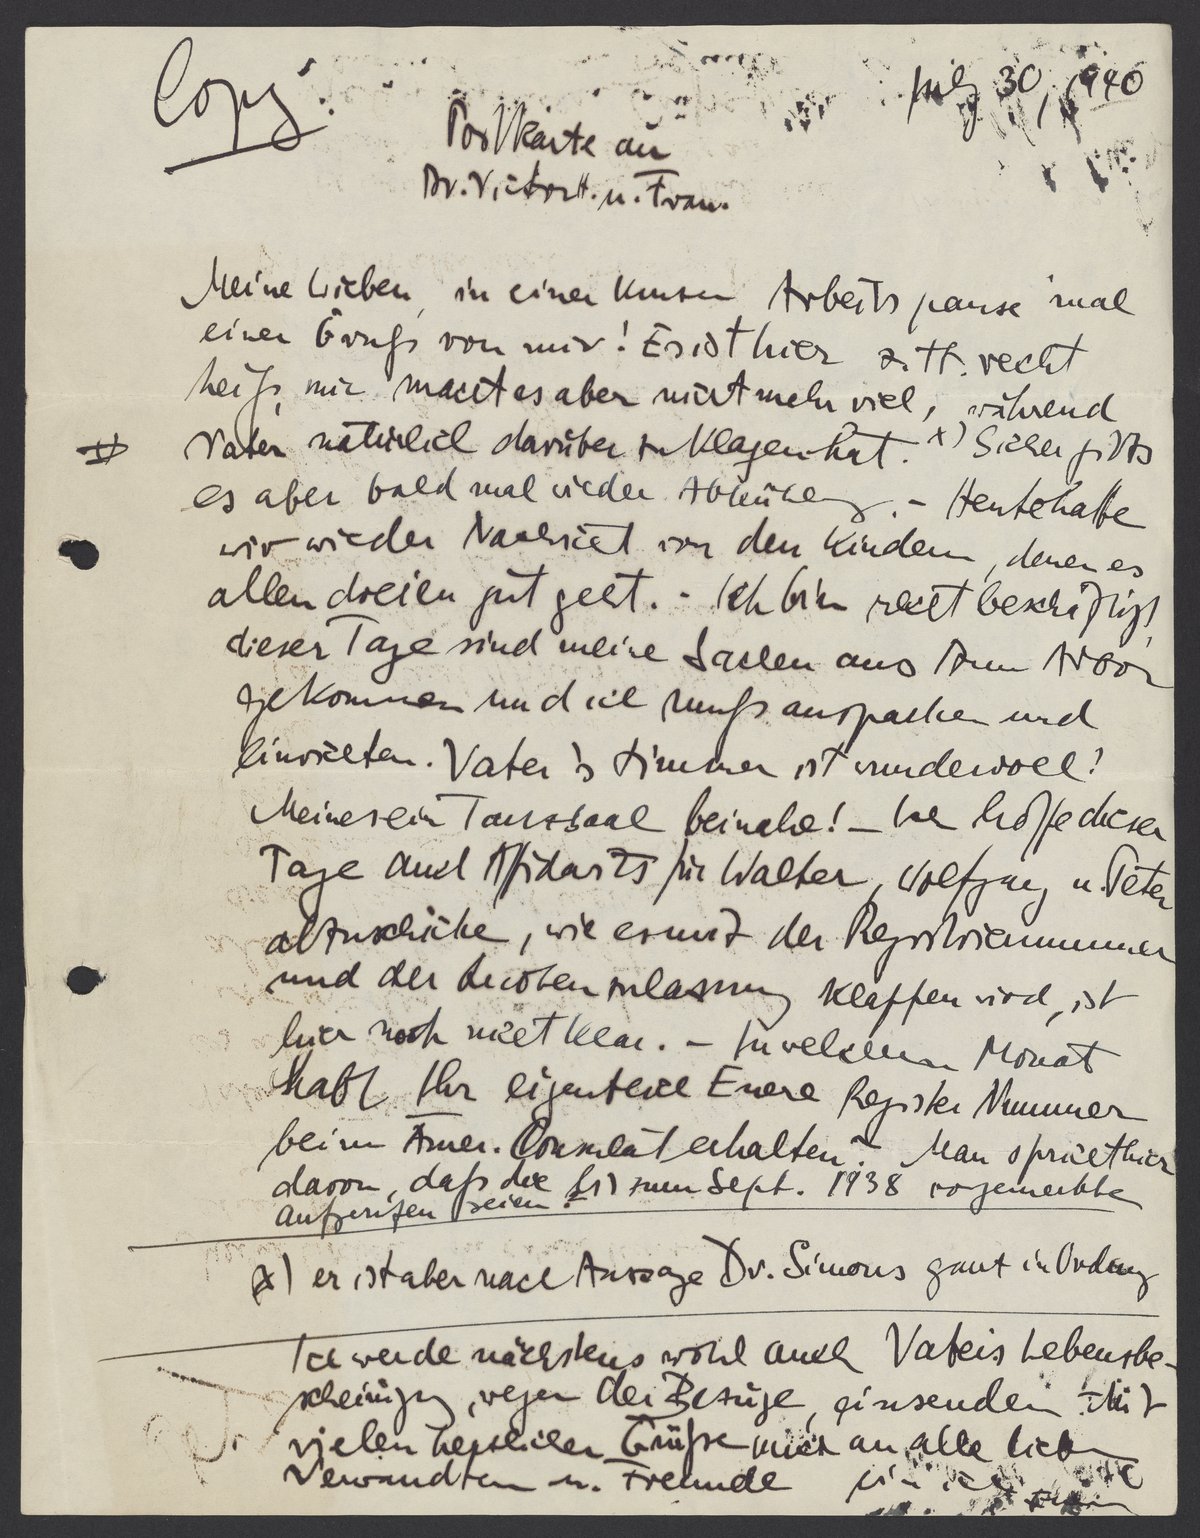 Copy.
July 30, 1940
Postkarte an
Dr. Victor H. u. Frau.
Meine Lieben, in einer kurzen Arbeitspause mal
einen Gruß von mir! Es ist hier z. Zt. recht
heiß, mir macht es aber nicht mehr viel, während
Vater natürlich darüber zu klagen hat. x) Sicher gibts
es aber bald mal wieder Abkühlung. - Heute hatte
wir wieder Nachricht von den Kindern, denen es
allen dreien gut geht. - Ich bin recht beschäftigt,
dieser Tage sind meine Sachen aus Ann Arbor
gekommen und ich muß auspacken und
einrichten. Vater's Zimmer ist wundervoll!
Meines ein Tanzsaal beinahe! - Ich hoffe dieser
Tage auch Affidavits für Walter, Wolfgang u. Peter
abzuschicke, wie es mit der Registriernummer
und der Quotenzulassung klappen wird, ist
hier noch nicht klar. - In welchem Monat
habt Ihr eigentlich Euere Register Nummer
beim Amer. Consulat erhalten? Man spricht hier
davon, daß die bis zum Sept. 1938 vorgemerkte
aufgerufen seien. -
x) er ist aber nach Aussage Dr. Simons ganz in Ordnung
Ich werde nächstens wohl auch Vaters Lebensbe-
scheinigung, wegen der Bezüge, einsenden. Mit
vielen herzlichen Grüßen auch an alle lieben
Verwandten u. Freunde bin ich